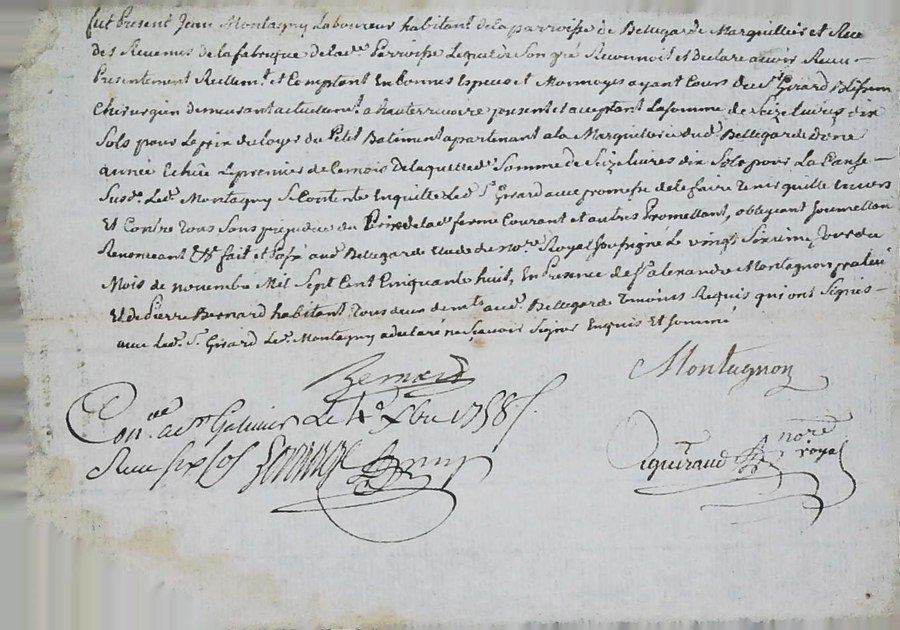 fut Present Jean Montagny Laboureur habitant de la parroisse de Bellegarde Marguillier et Rece
des Revenus de la fabrique de lad.e Parroisse Lequel de Son gré Reconnoit et declare avoir Receu
Presentement Reellem.t et Comptant En bonnes Especes et Monnoyes ayant Cours du s.r Girard
Chirurgien demeurant actuellem.t a hauterivoire present et acceptant La somme de Seize Livres dix
Sols pour Le prix du Loyer du Petit Batiment appartenant a la Marguillerie dud. Bellegarde d'une
année Echüe Le premier de Ce mois De laquelle d. Somme de Seize Livres dix Sols pour La Cause
Susd. Led. Montagny Se Contente En quitte Led. S.r Girard avec promesse de le faire Tenir quitte Envers
Et Contre Tous Sans prejudice du Prix de lad. ferme Courant et autres Promettant, obligeant Soumettant
Renonceant &.a fait et Passé aud. Bellegarde Etude du no.re Royal Soussigné Le vingt Sixieme Jour du
Mois de novembre Mil Sept Cent Cinquante huit, En Presence de S.r alexandre Montagnon praticien
Et de Pierre Bernard habitant Tous deux dem.ts aud. Bellegarde Temoins Requis qui ont Signés
avec Led. S.r Girard Led. Montagny a declaré ne Sçavoir Signer Enquis Et Sommé
Bernard
Montagnon
Con.lé a S.t Galmier Le 4.e Xbre 1758
Receu six sols
no.re
royal